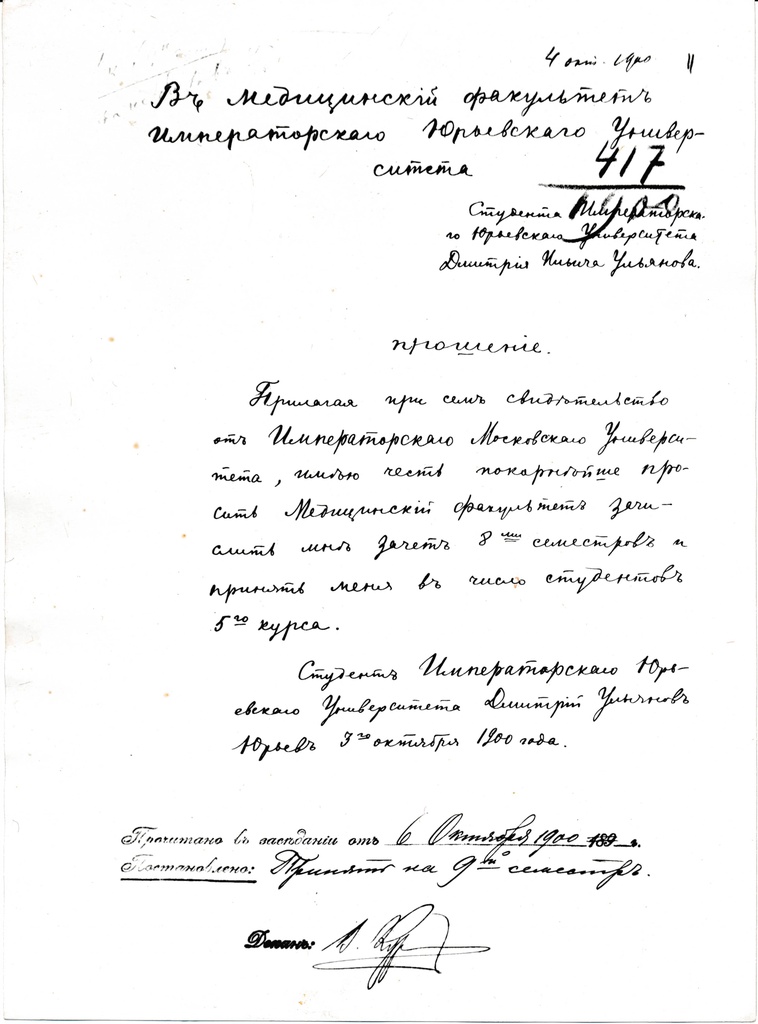 4 окт. 1900 11
Въ Медицинскій факультетъ
Императорскаго Юрьевскаго Универ-
ситета
417
1900
Студента Императорска-
го Юрьевскаго Университета
Дмитрія Ильича Ульянова.
прошеніе.
Прилагая при семъ свидѣтельство
отъ Императорскаго Московскаго Универси-
тета, имѣю честь покорнѣйше про-
сить Медицинскій факультетъ зачи-
слить мнѣ зачетъ 8ми семестровъ и
принять меня въ число студентовъ
5го курса.
Студентъ Императорскаго Юрь-
евскаго Университета Дмитрій Ульяновъ
Юрьевъ 3го октября 1900 года.
Прочитано въ засѣданіи отъ 6 Октября 1900 189 г.
Постановлено: Принять на 9й семестръ.
Деканъ: